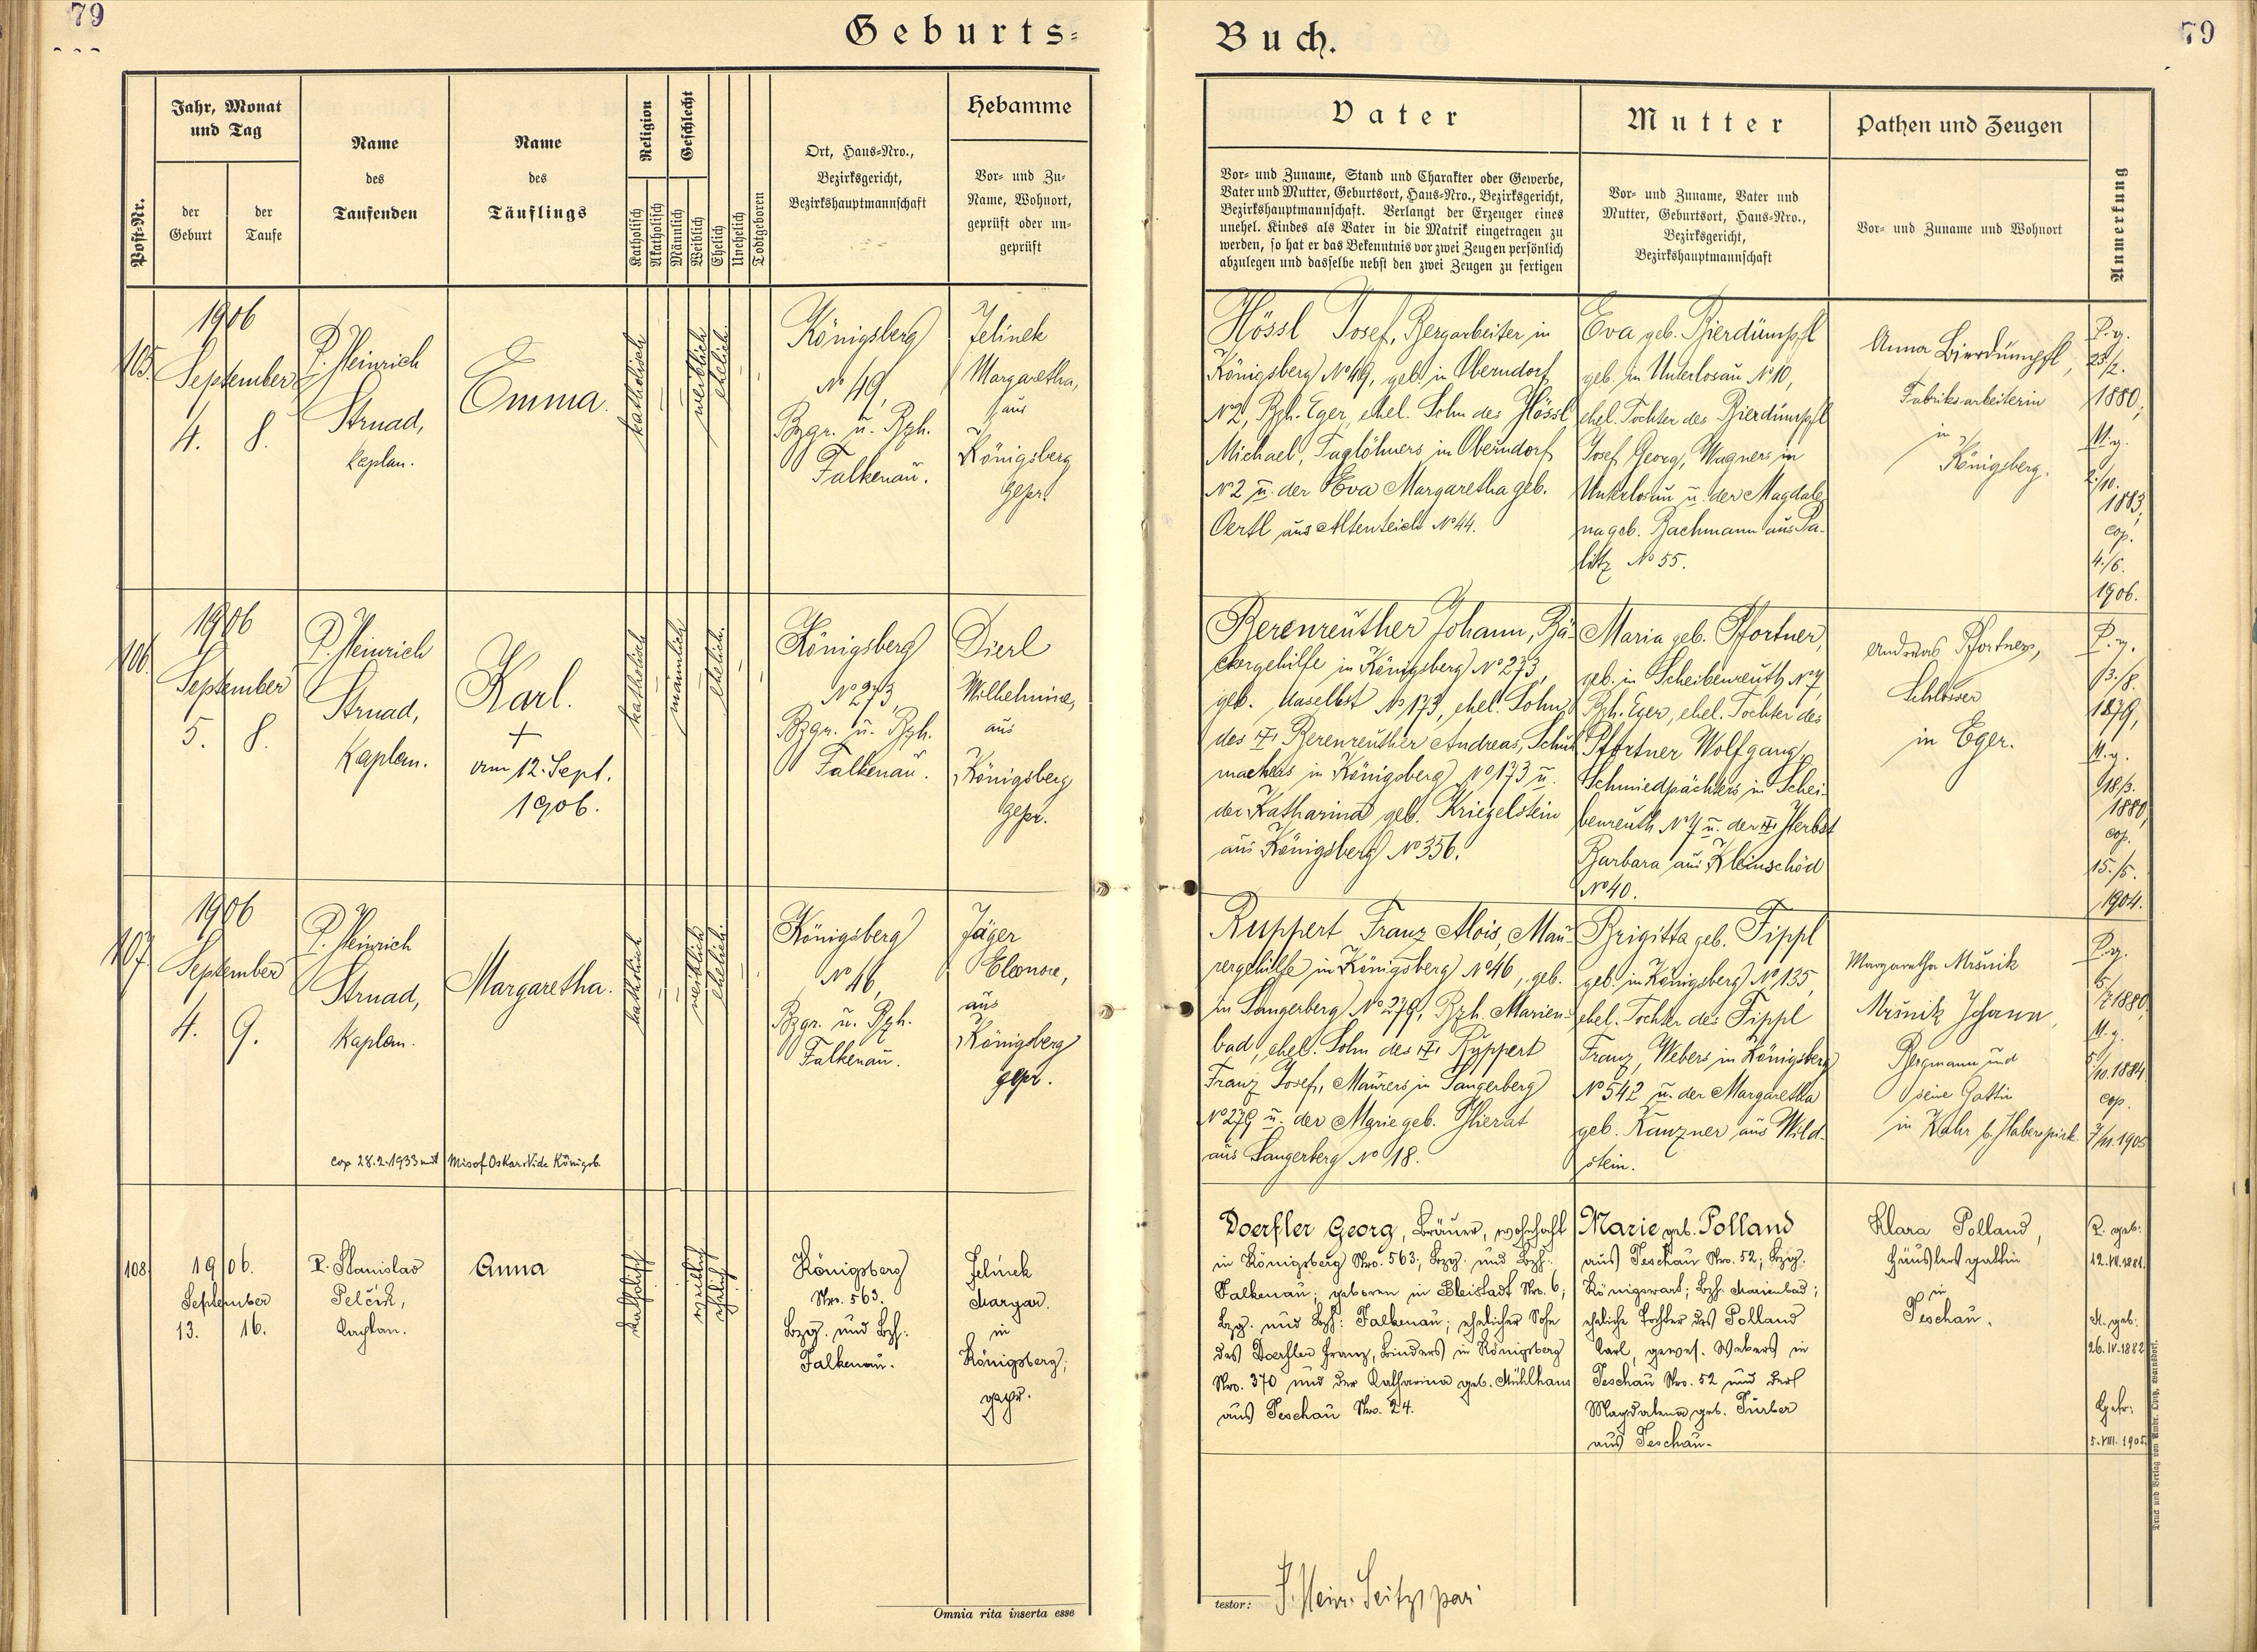 79
Geburts-
Buch.
79
Post-Nr.
Jahr, Monat
und Tag
der
Geburt
der
Taufe
Name
des
Taufenden
Name
des
Täuflings
Religion
Katholisch
Akatholisch
Geschlecht
Männlich
Weiblich
Ehelich
Unehelich
Todtgeboren
Ort, Haus-Nro.,
Bezirksgericht,
Bezirkshauptmannschaft
Hebamme
Vor- und Zu-
Name, Wohnort,
geprüft oder un-
geprüft
Vater
Vor- und Zuname, Stand und Charakter oder Gewerbe,
Vater und Mutter, Geburtsort, Haus-Nro., Bezirksgericht,
Bezirkshauptmannschaft. Verlangt der Erzeuger eines
unehel. Kindes als Vater in die Matrik eingetragen zu
werden, so hat er das Bekenntnis vor zwei Zeugen persönlich
abzulegen und dasselbe nebst den zwei Zeugen zu fertigen
Mutter
Vor- und Zuname, Vater und
Mutter, Geburtsort, Haus-Nro.,
Bezirksgericht,
Bezirkshauptmannschaft
Pathen und Zeugen
Vor- und Zuname und Wohnort
Anmerkung
105.
1906
September
4. 8.
P. Heinrich
Strnad,
Kaplan.
Emma.
katholisch
weiblich
ehelich.
Königsberg
No 49,
Bzgr. u. Bzh.
Falkenau.
Jelinek
Margaretha,
aus
Königsberg
gepr.
Hössl Josef, Bergarbeiter in
Königsberg No 49, geb. in Oberndorf
No 2, Bzh. Eger, ehel. Sohn des Hössl
Michael, Taglöhners in Oberndorf
No 2 u. der Eva Margaretha geb.
Oertl aus Altenteich No 44.
Eva geb. Bierdümpfl
geb. in Unterlosau No 10,
ehel. Tochter des Bierdümpfl
Josef Georg, Wagners in
Unterlosau u. der Magdale-
na geb. Bachmann aus Pa-
litz No 55.
Anna Bierdümpfl,
Fabriksarbeiterin
in
Königsberg.
P. g.
23/2.
1880;
M. g.
2/10.
1883,
cop.
4./6.
1906.
106.
1906
September
5. 8.
P. Heinrich
Strnad,
Kaplan.
Karl.
+
am 12. Sept.
1906.
katholisch
männlich
ehelich.
Königsberg
No 273
Bzgr. u. Bzh.
Falkenau.
Dierl
Wilhelmine,
aus
Königsberg
gepr.
Berenreuther Johann, Bä-
ckergehilfe in Königsberg No 273,
geb. daselbst No 173, ehel. Sohn
des + Berenreuther Andreas, Schuh
machers in Königsberg No 173 u.
der Katharina geb. Kriegelstein
aus Königsberg No 356.
Maria geb. Pfortner,
geb. in Scheibenreuth No 7,
Bzh. Eger, ehel. Tochter des
Pfortner Wolfgang,
Schmiedpächters in Schei-
benreuth No 7 u. der + Herbst
Barbara aus Kleinschöd
No 40.
Andreas Pfortner,
Schlosser
in Eger.
P. g.
13./8.
1879,
M. g.
18/3.
1880,
cop.
15./5.
1904.
107.
1906
September
4. 9.
P. Heinrich
Strnad,
Kaplan.
Margaretha.
cop 28.2.1933 mit Misof Oskar. Vide Königsb.
katholisch
weiblich
ehelich.
Königsberg
No 46,
Bzgr. u. Bzh.
Falkenau.
Jäger
Eleonore,
aus
Königsberg
gepr.
Ruppert Franz Alois, Mau-
rergehilfe in Königsberg No 46, geb.
in Sangerberg No 279, Bzh. Marien-
bad, ehel. Sohn des + Ruppert
Franz Josef, Maurers in Sangerberg
No 279 u. der Marie geb.
aus Sangerberg No 18.
Brigitta geb. Fippl
geb. in Königsberg No 135,
ehel. Tochter des Fippl
Franz, Webers in Königsberg
No 542 u. der Margaretha
geb. Kanzner aus Wild-
stein.
Margaretha Mrsnik
Mrsnik Johann,
Bergmann und
seine Gattin
in b. Haberspirk
P. g.
5/
7. 1880,
M. g.
5/10. 1884
cop.
7/11. 1905
108.
1906.
September
13. 16.
P. Stanislav
Pelčik,
Kaplan.
Anna
katholisch
weiblich
ehelich
Königsberg
Nro. 563.
Bzg. und Bzh:
Falkenau.
Jelinek
Margar.
in
Königsberg;
gepr.
Doerfler Georg, Bräuer, wohnhaft
in Königsberg Nro. 563; Bzg. und Bzh:
Falkenau; geboren in Bleistadt Nro. 6;
Bzg. und Bzh: Falkenau; ehelicher Sohn
des Doerfler Franz, Binders in Königsberg
Nro. 370 und der Katharina geb. Mühlhans
aus Teschau Nro. 24.
Marie geb. Polland
aus Teschau Nro. 52; Bzg.
Königswart; Bzh. Marienbad;
eheliche Tochter des Polland
Karl, gewes. Webers in
Teschau Nro. 52 und der
Magdalena geb. Türber
aus Teschau.
Klara Polland,
Häuslers gattin
in
Teschau.
P. geb:
12.VII.1881.
M. geb:
26.IV.1882
Getr:
5.VIII.1905.
Omnia rita inserta esse
testor: P. Heinr. Seitz, par
Druck und Verlag von Ambr. Opitz, Warnsdorf.